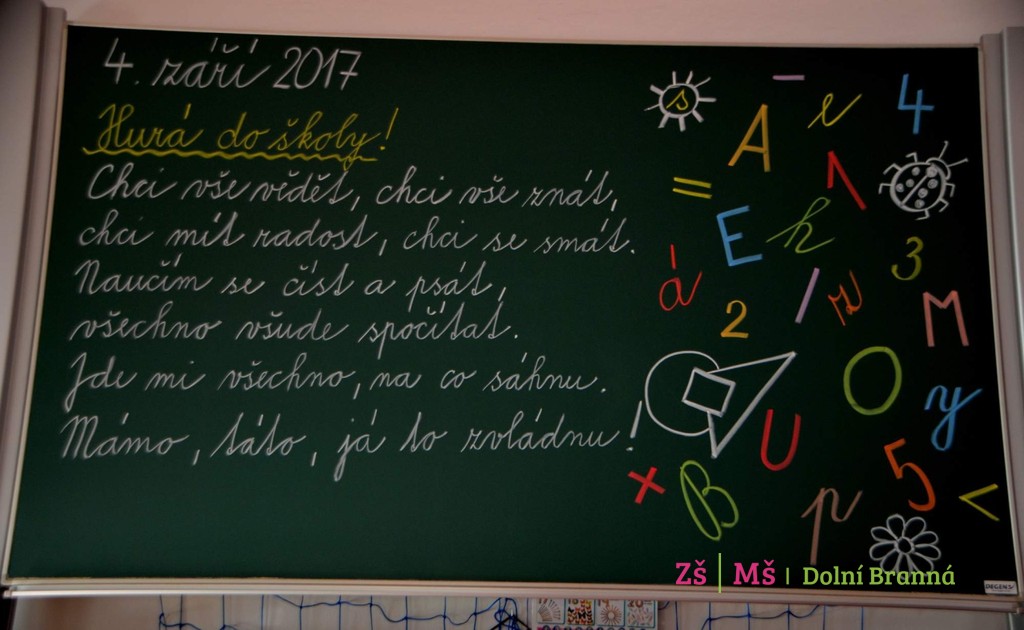 4. září 2017
Hurá do školy!
Chci vše vědět, chci vše znát,
chci mít radost, chci se smát.
Naučím se číst a psát,
všechno všude spočítat.
Jde mi všechno, na co sáhnu.
Mámo, táto, já to zvládnu!
s
–
A
e
4
=
1
E
h
3
á
2
/
z
M
O
y
U
5
×
B
p
<
ZŠ | MŠ | Dolní Branná